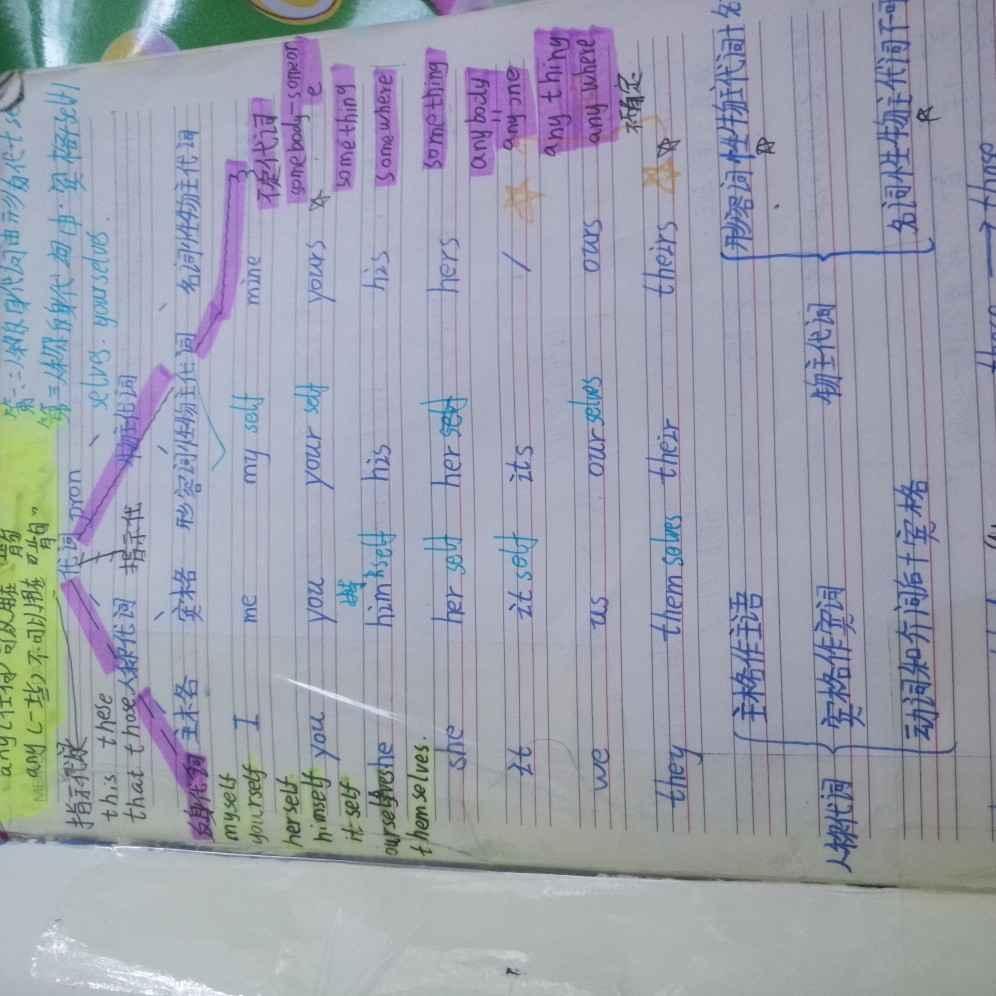 any(任何)可以用于肯
any(一些)不可以用于 "肯"
第一.二人称反身代词由形物代+sel
第三人称反身代词由.宾格+self/
selves. yourselves.
代词 pron
指示代词
this these
that those
人称代词 指示代 物主代词
反身代词 主格 宾格 形容词性物主代词 名词性物主代词
myself
yourself
herself
himself
itself
ourselves
themselves.
I me my self mine
you you your self yours
he himself his his
she her self her self hers
it it self its /
we us our selves ours
they them selves their theirs
不定代词
somebody-someone
something
somewhere
something
anybody
anyone
any thing
any where
不确定
人称代词
主格作主语
宾格作宾词
动词和介词后+宾格
物主代词
形容词性物主代词+名
名词性物主代词不可
those